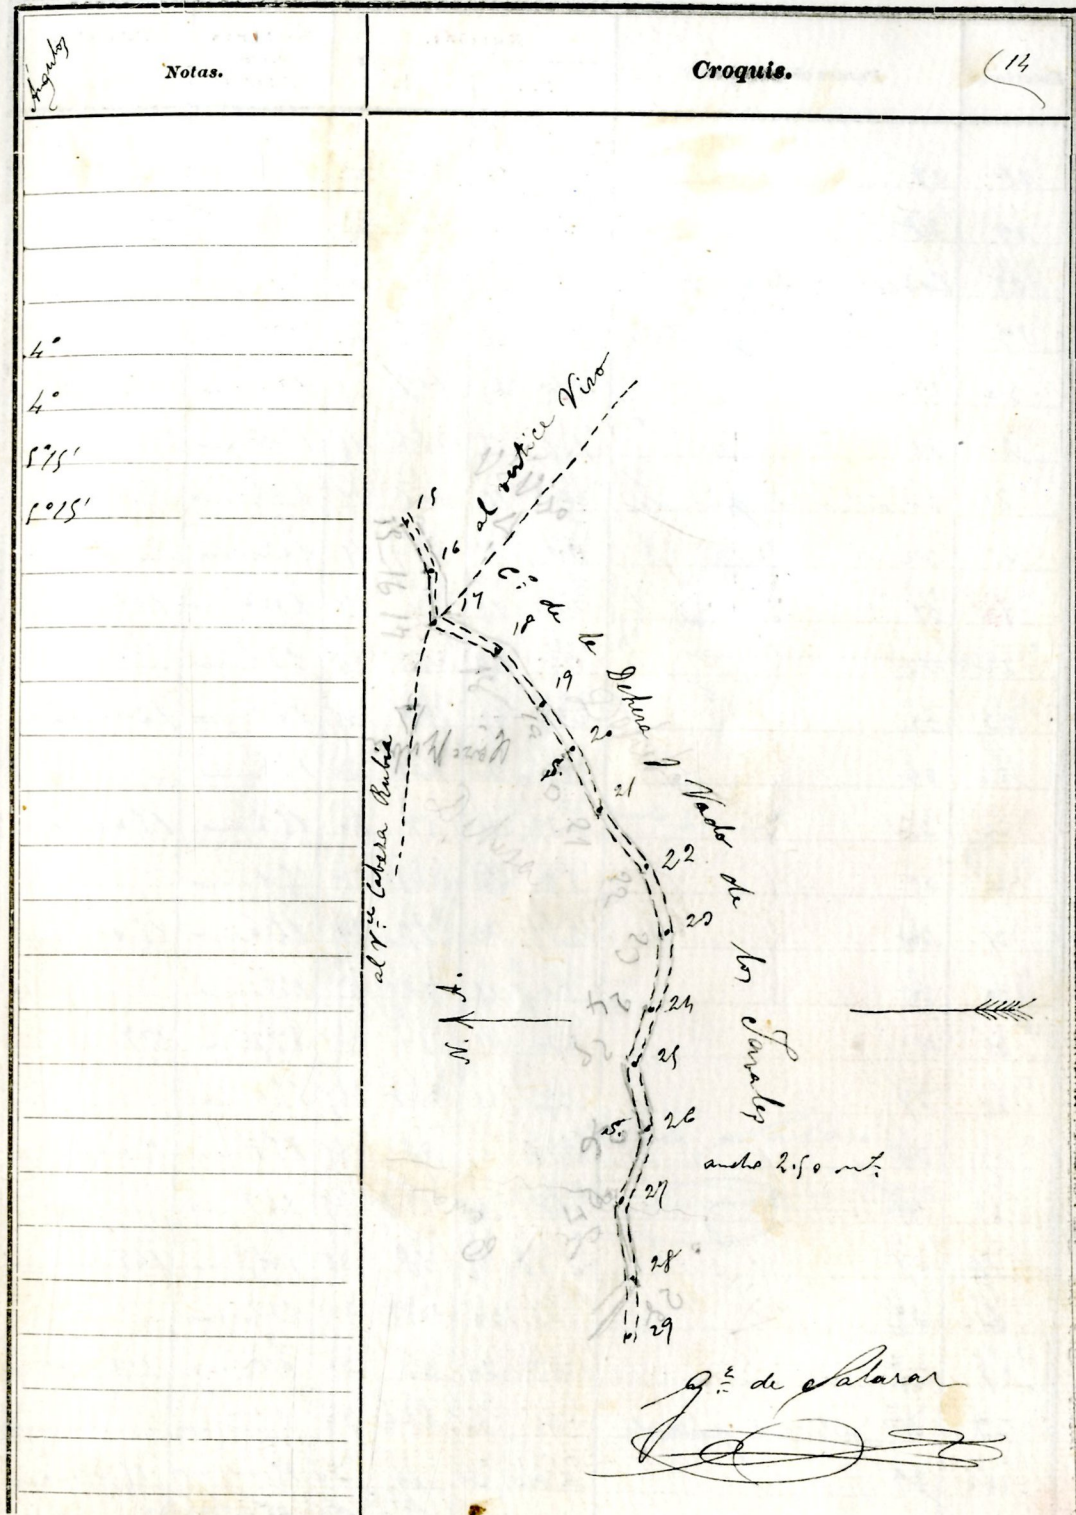 Angulos
Notas.
Croquis.
14
4°
4°
5°15'
5°25'
al vertice Viso
15
16
17
18
19
20
21
22
23
24
25
26
27
28
29
C.º de la Dehesa y Vado de los
al v.ce Cabeza Rubia
N. A.
ancho 2.50 mt.
de Salazar